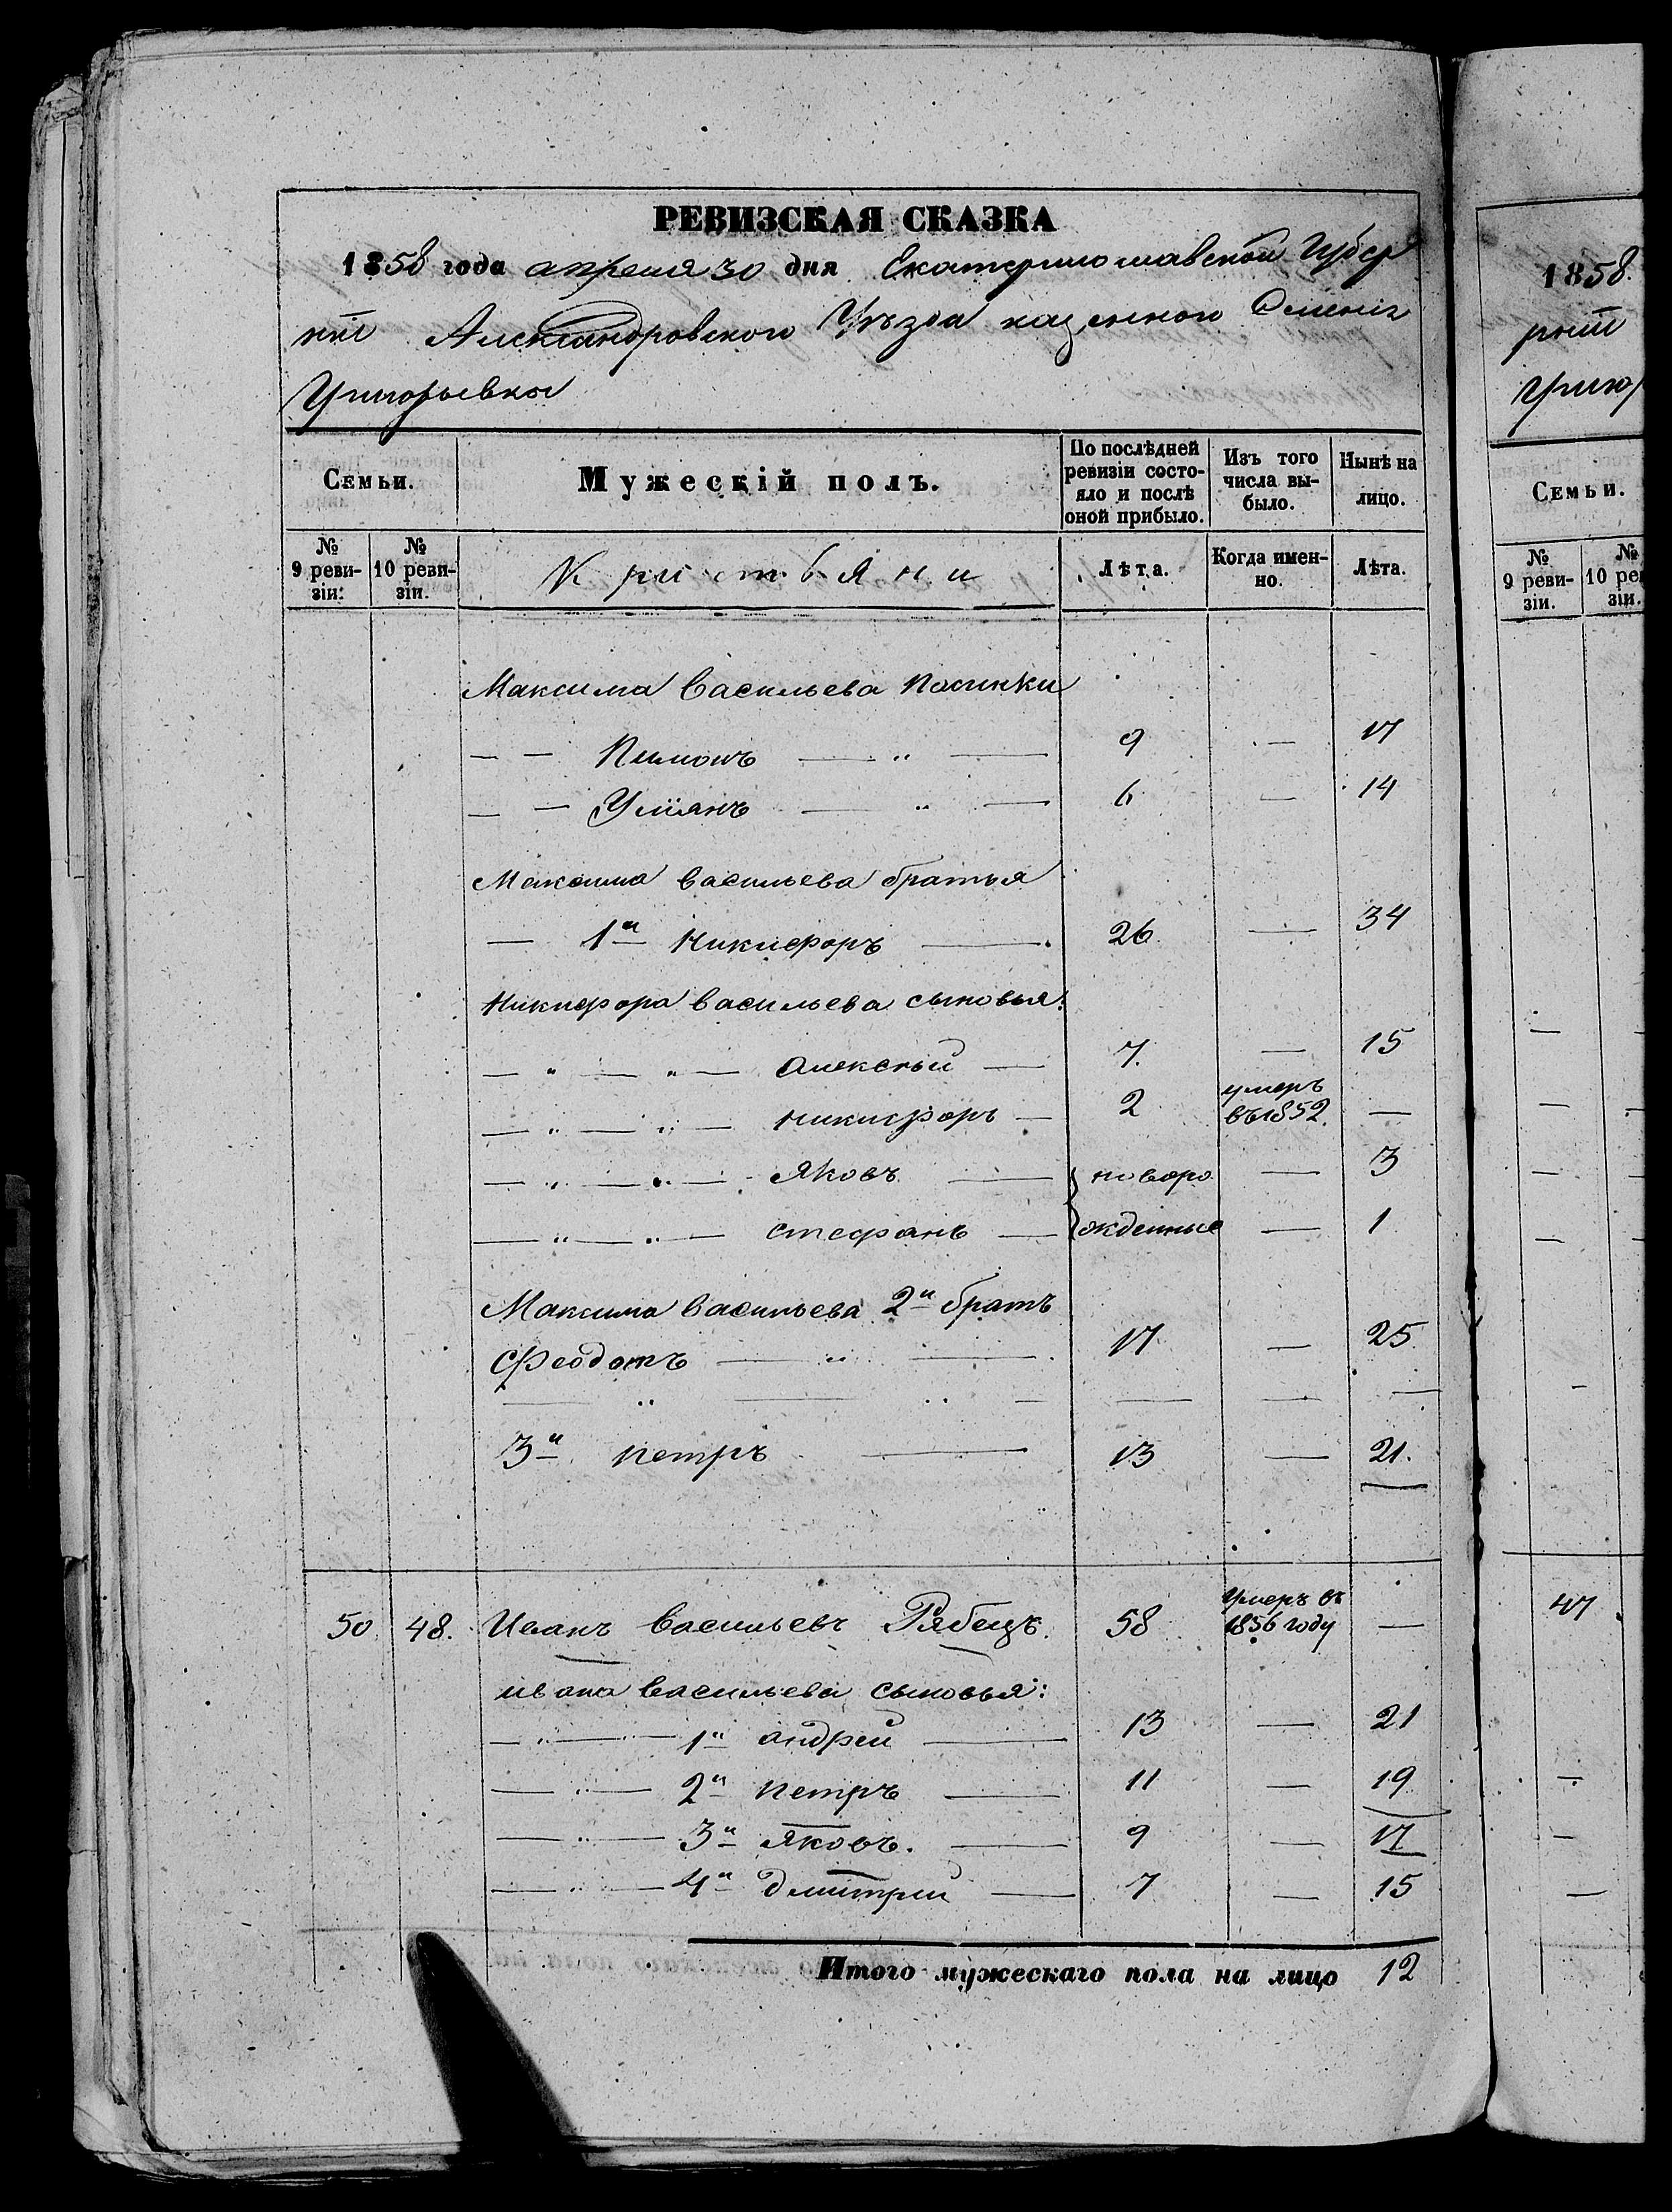 РЕВИЗСКАЯ СКАЗКА
1858 года апреля 30 дня Екатеринославской Губер
ніи Александровского Уѣзда казенной Еленів
Григорьевки
Семьи.
Мужескій полъ.
По послѣдней ревизіи состояло и послѣ оной прибыло.
Изъ того числа выбыло.
Нынѣ на лицо.
№ 9 ревизіи.
№ 10 ревизіи.
Крестьяни
Лѣта.
Когда именно.
Лѣта.
Максима Васильева Пасинки
— — Пимонъ — „ — 9 — 17
— — Уліянъ — „ — 6 — 14
Максима Васильева братья
— 1й Никифоръ — 26 — 34
Никифора Васильева сыновья:
— „ — „ — Алексѣй — 7 — 15
— „ — „ — Никифоръ — 2 умеръ въ 1852. —
— „ — „ — Яковъ — новоро — 3
— „ — „ — Стефанъ — жденные — 1
Максима Васильева 2й братъ
Феодотъ — „ — 17 — 25
— „ — „ — — — —
3й Петръ — 13 — 21.
50 48. Иванъ Васильевъ Рябецъ. 58 Умеръ въ 1856 году —
Ивана Васильева сыновья:
— „ — „ — 1й Андрей — 13 — 21
— „ — 2й Петръ — 11 — 19
— „ — 3й Яковъ. — 9 — 17
— „ — 4й Дмитрий — 7 — 15
Итого мужескаго пола на лицо 12
1858.
рніи
Григо
Семьи.
№ 9 ревизіи.
№ 10 ре
зіи.
47